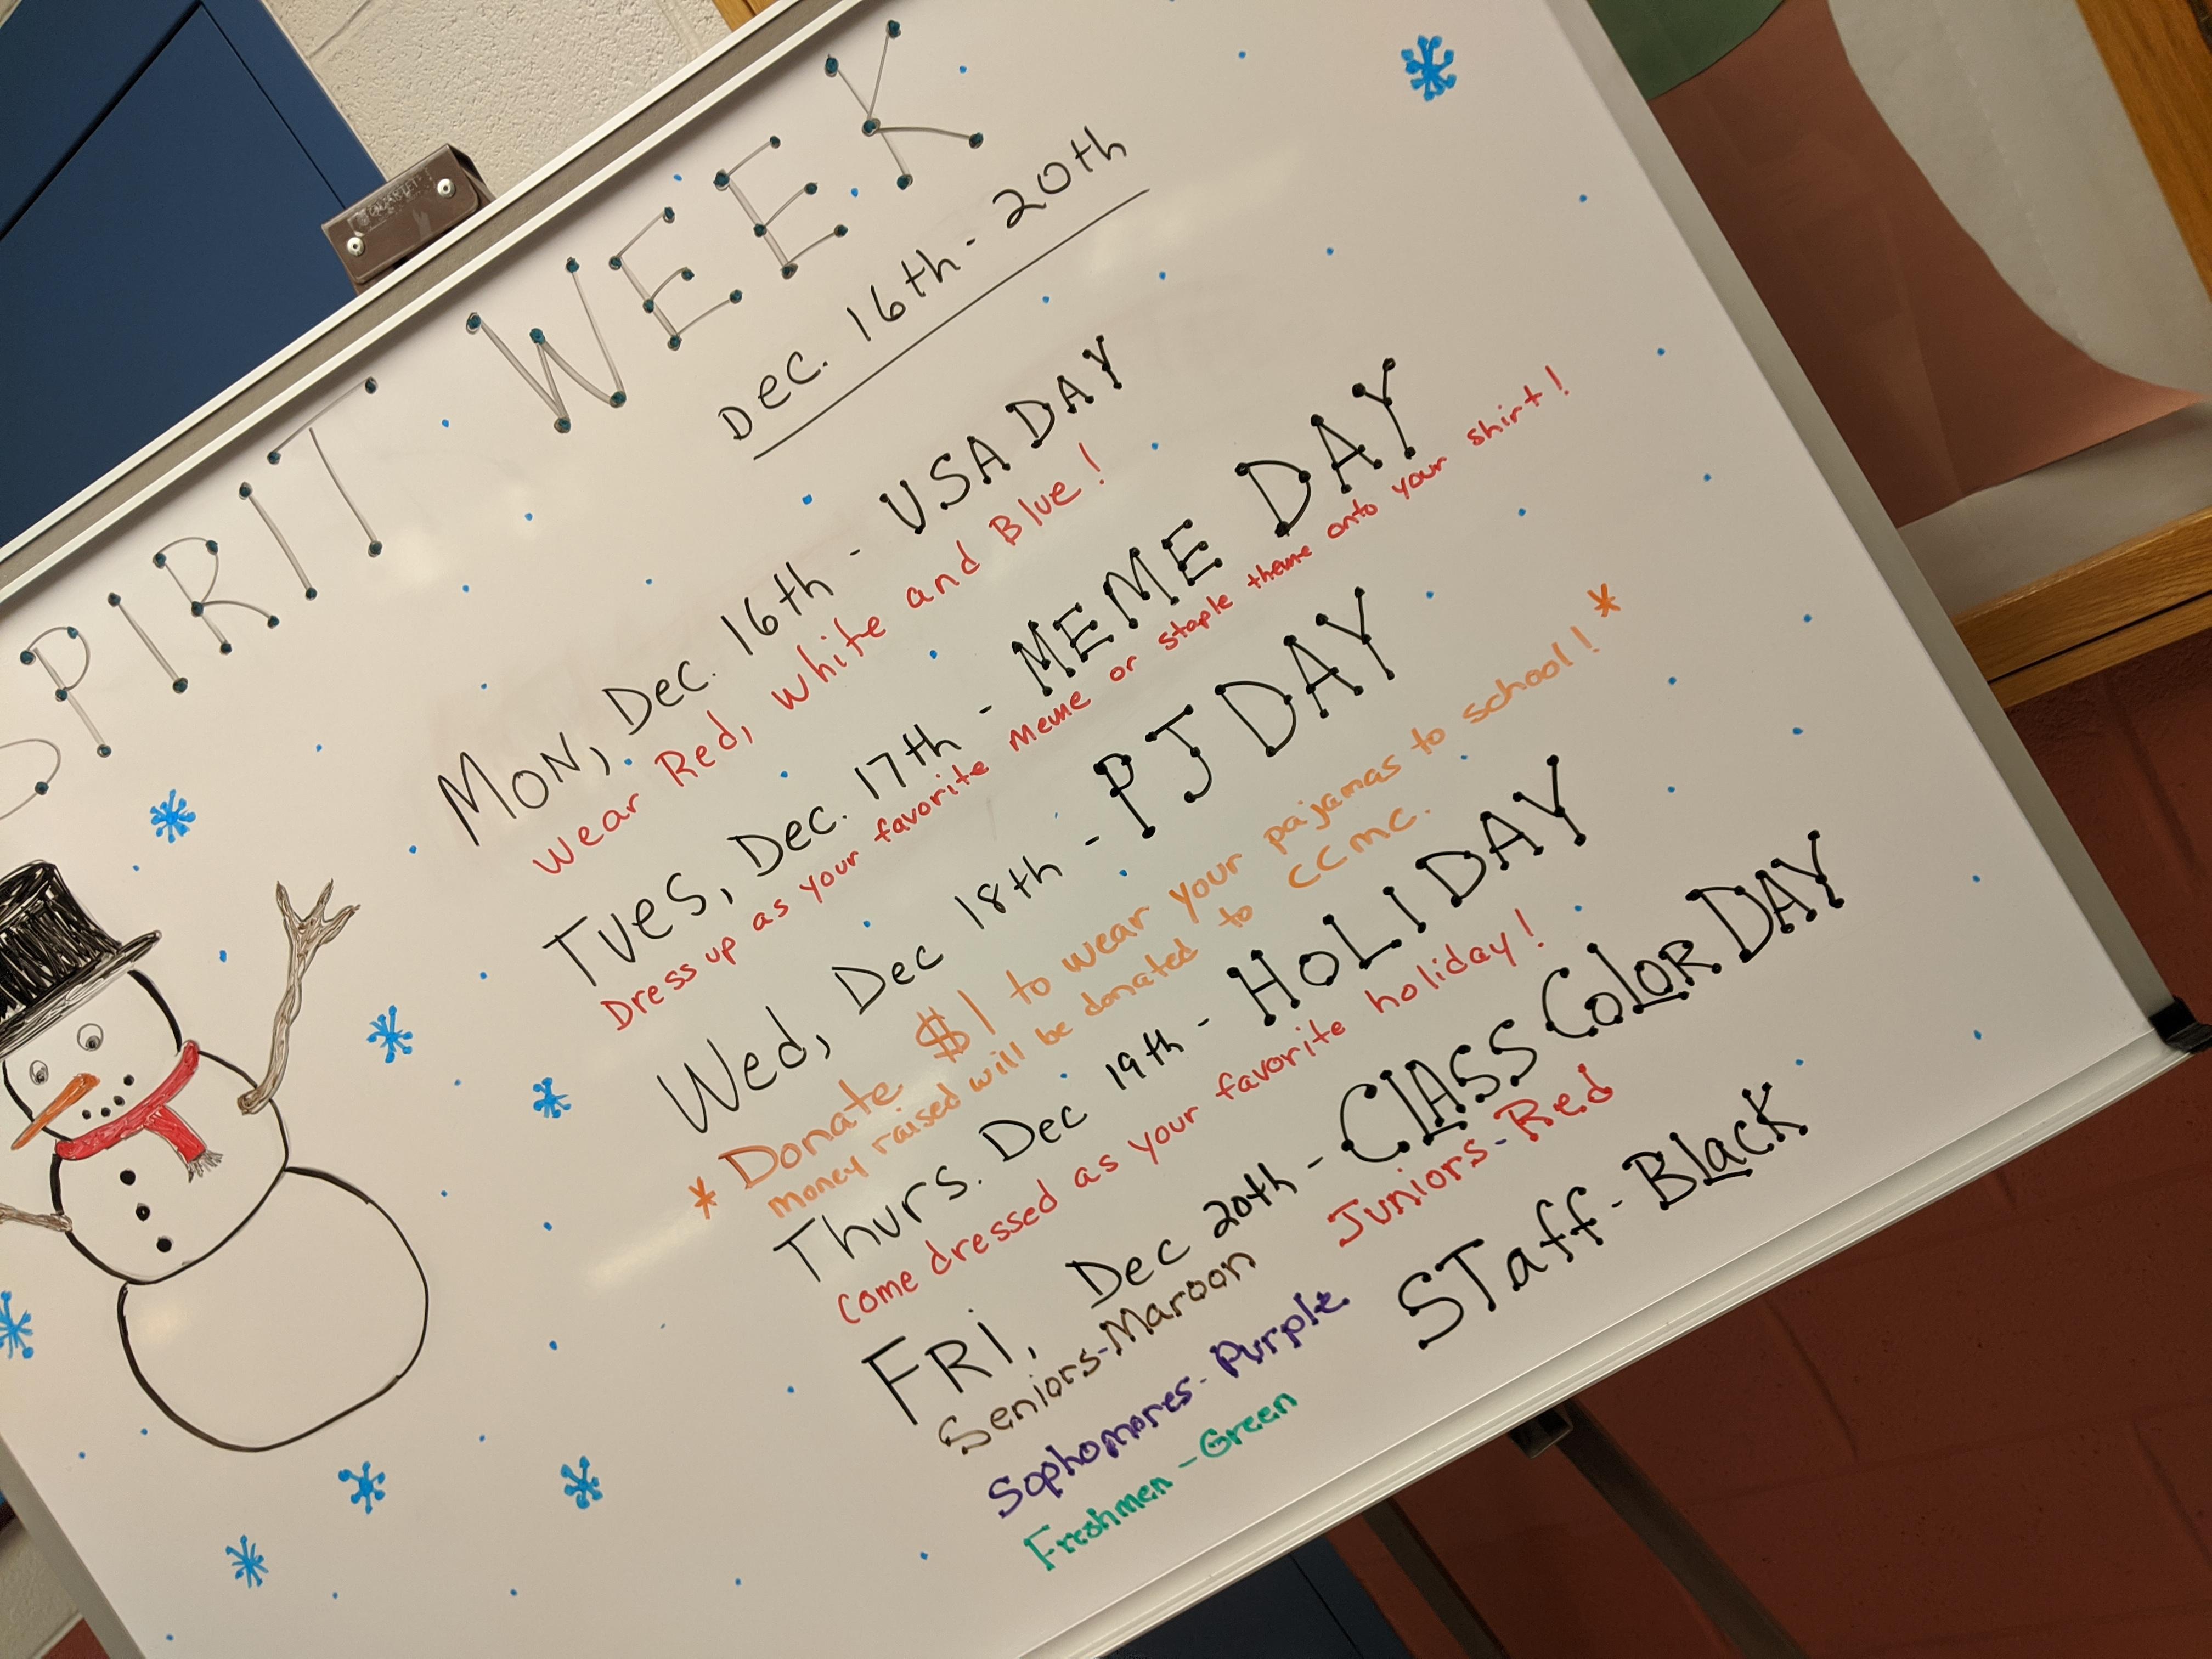 SPIRIT WEEK
Dec. 16th - 20th
MON, Dec. 16th - USA DAY
Wear Red, White and Blue!
Tues, Dec. 17th - MEME DAY
Dress up as your favorite meme or staple theme onto your shirt!
Wed, Dec 18th - PJ DAY
* Donate $1 to wear your pajamas to school! *
money raised will be donated to CCMC.
Thurs. Dec 19th - HOLIDAY
Come dressed as your favorite holiday!
FRI, Dec 20th - CLASS COLOR DAY
Seniors-Maroon Juniors-Red
Sophomores-Purple STaff-Black
Freshmen-Green